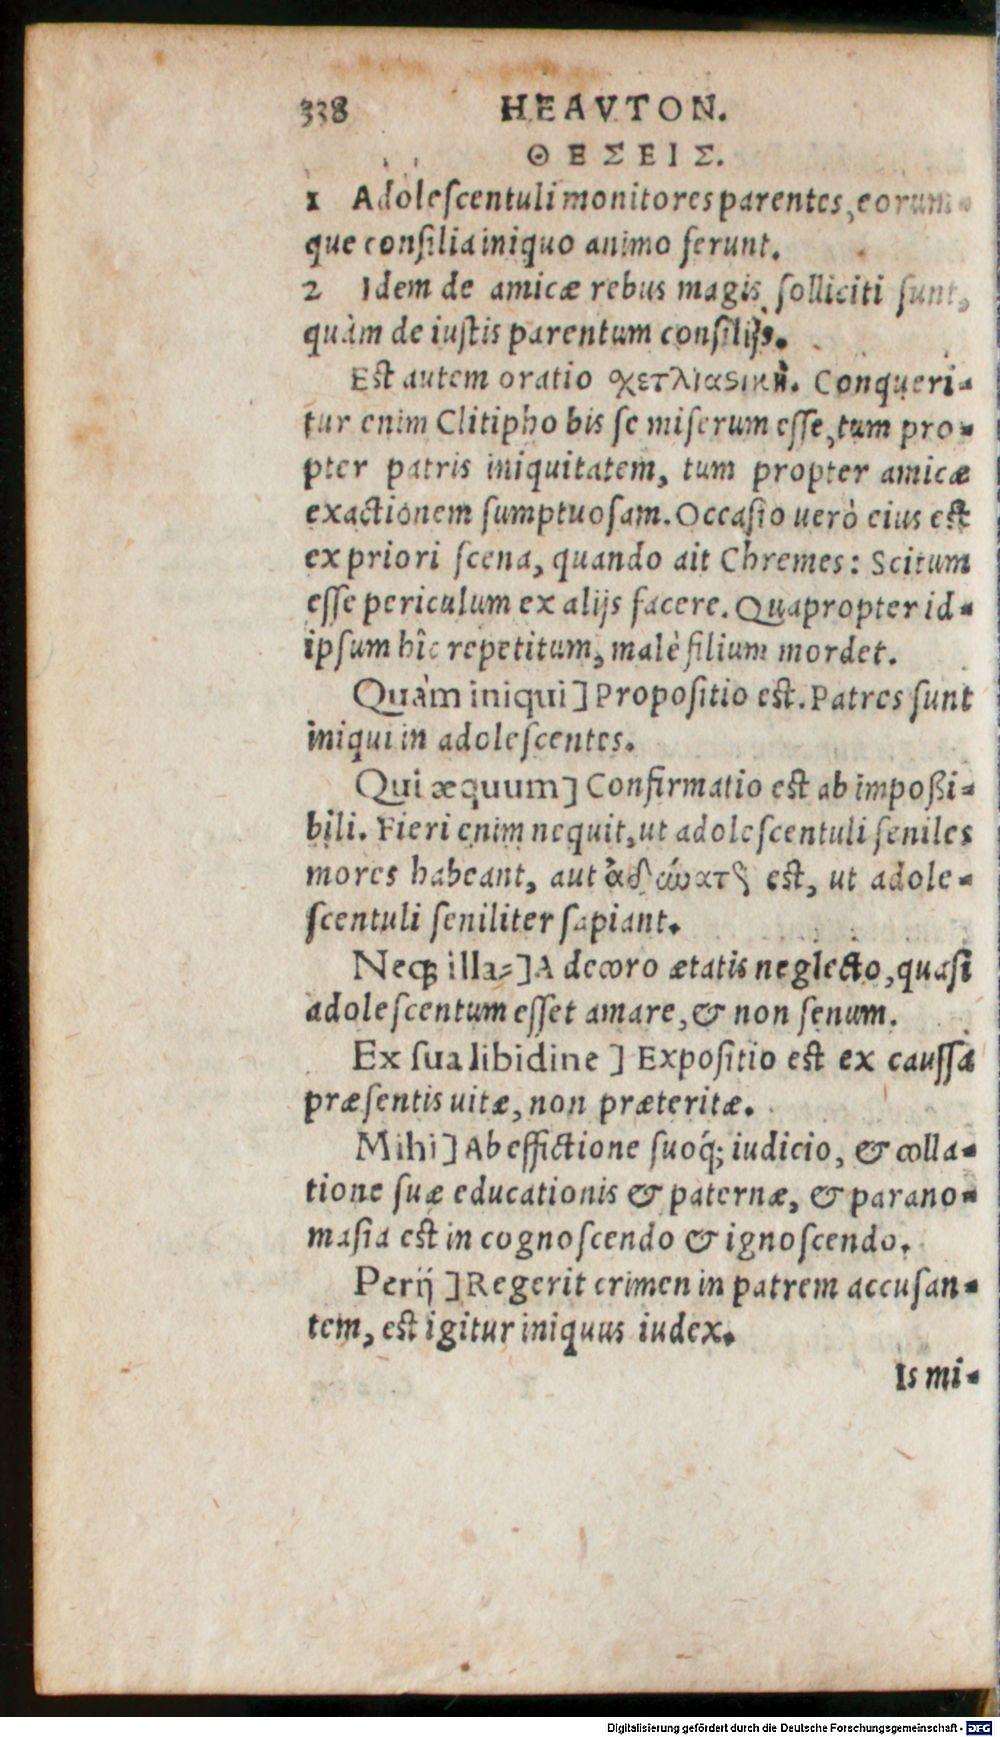 338 HEAVTON.
ΘΕΣΕΙΣ.
1 Adolescentuli monitores parentes, eorum-
que consilia iniquo animo ferunt.
2 Idem de amicæ rebus magis solliciti sunt,
quàm de iustis parentum consilijs.
Est autem oratio σχετλιαστικὴ. Conqueri-
tur enim Clitipho bis se miserum esse, tum pro-
pter patris iniquitatem, tum propter amicæ
exactionem sumptuosam. Occasio uerò eius est
ex priori scena, quando ait Chremes: Scitum
esse periculum ex alijs facere. Quapropter id-
ipsum hîc repetitum, malè filium mordet.
Quàm iniqui] Propositio est. Patres sunt
iniqui in adolescentes.
Qui æquum] Confirmatio est ab impoßi-
bili. Fieri enim nequit, ut adolescentuli seniles
mores habeant, aut ἀδύνατον est, ut adole-
scentuli seniliter sapiant.
Neq; illa-] A decoro ætatis neglecto, quasi
adolescentum esset amare, & non senum.
Ex sua libidine] Expositio est ex caussa
præsentis uitæ, non præteritæ.
Mihi] Ab effictione suoq́; iudicio, & colla-
tione suæ educationis & paternæ, & parano-
masia est in cognoscendo & ignoscendo.
Perij] Regerit crimen in patrem accusan-
tem, est igitur iniquus iudex.
Is mi-
Digitalisierung gefördert durch die Deutsche Forschungsgemeinschaft - DFG